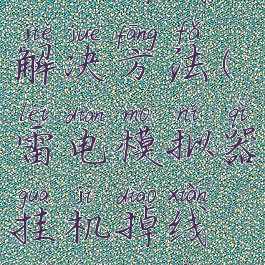 jiě jué fāng fǎ
解决方法(
léi diàn mó nǐ qì
雷电模拟器
guà jī diào xiàn
挂机掉线